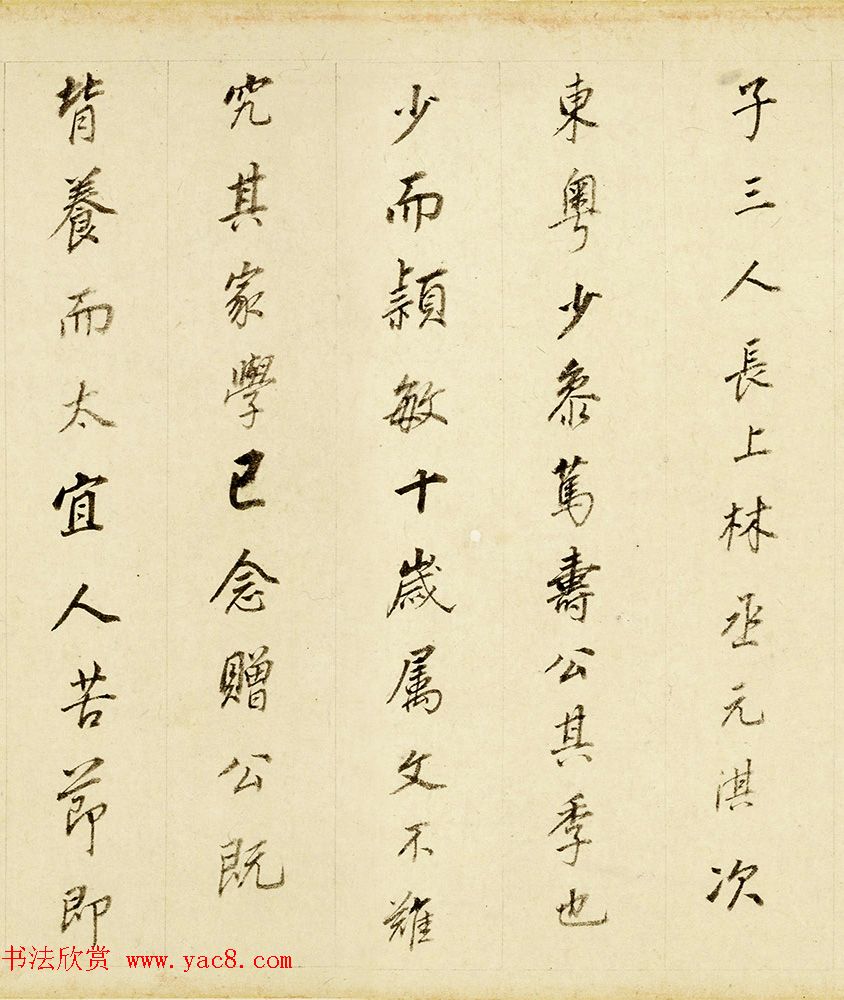 子三人長上林丞元淇次
東粵少叅篤壽公其季也
少而穎敏十歲属文不難
究其家學已念贈公既
背養而太宜人苦節即
书法欣赏 www.yac8.com